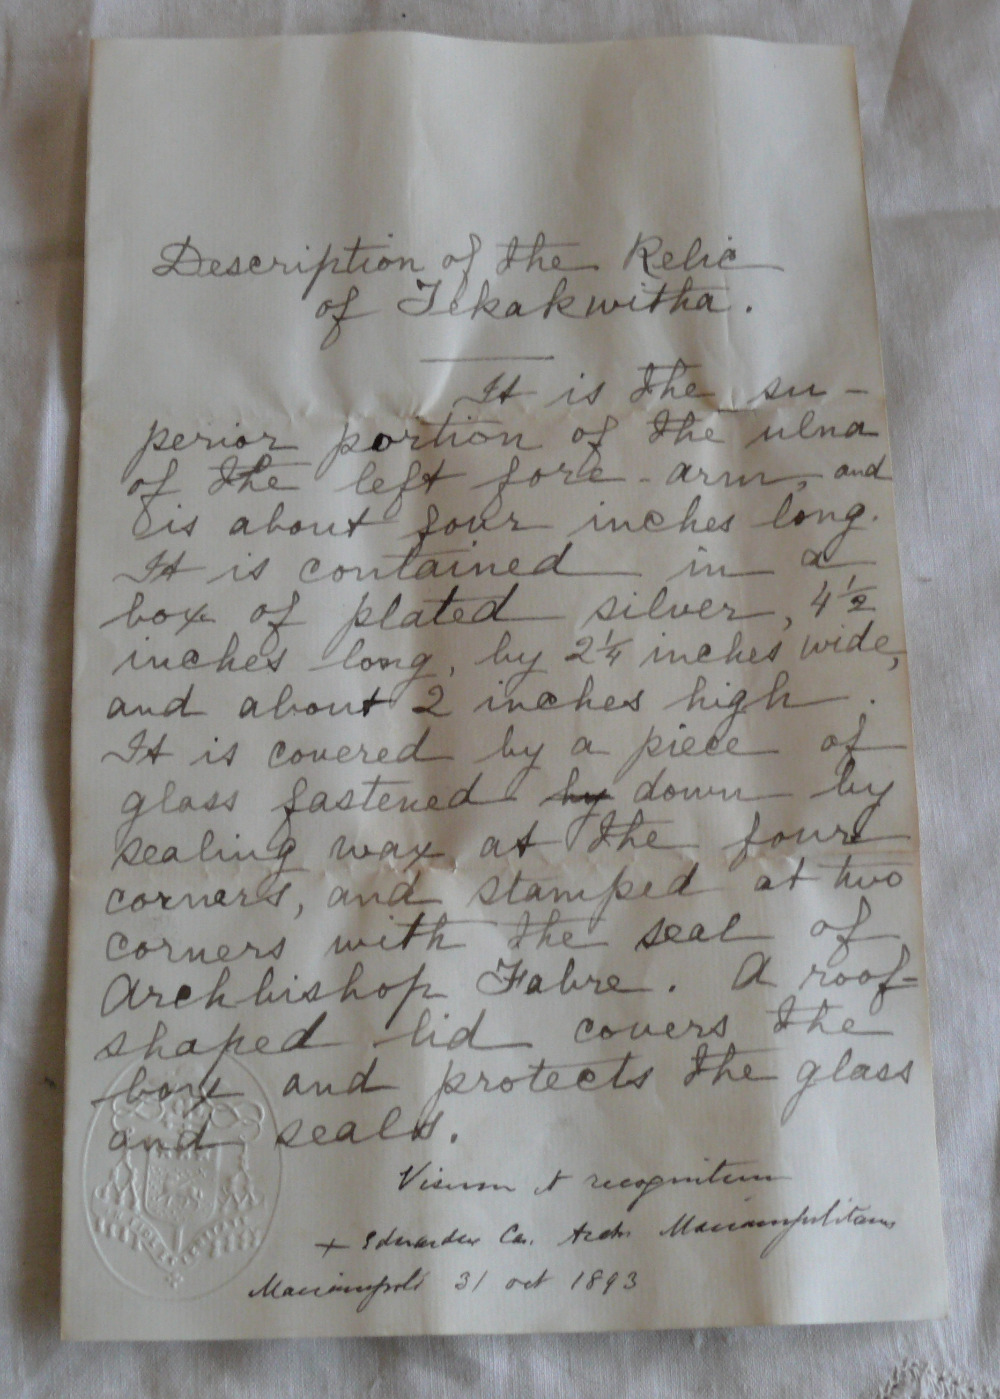 Description of the Relic
of Tekakwitha.
It is the su-
perior portion of the ulna
of the left fore-arm, and
is about four inches long.
It is contained in a
box of plated silver, 4 1/2
inches long, by 2 1/4 inches wide,
and about 2 inches high.
It is covered by a piece of
glass fastened by down by
sealing wax at the four
corners, and stamped at two
corners with the seal of
Archbishop Fabre. A roof-
shaped lid covers the
box and protects the glass
and seals.
Visum et recognitum
+ Eduardus Car. Arch. Marianopolitanus
Marianopoli 31 oct 1893